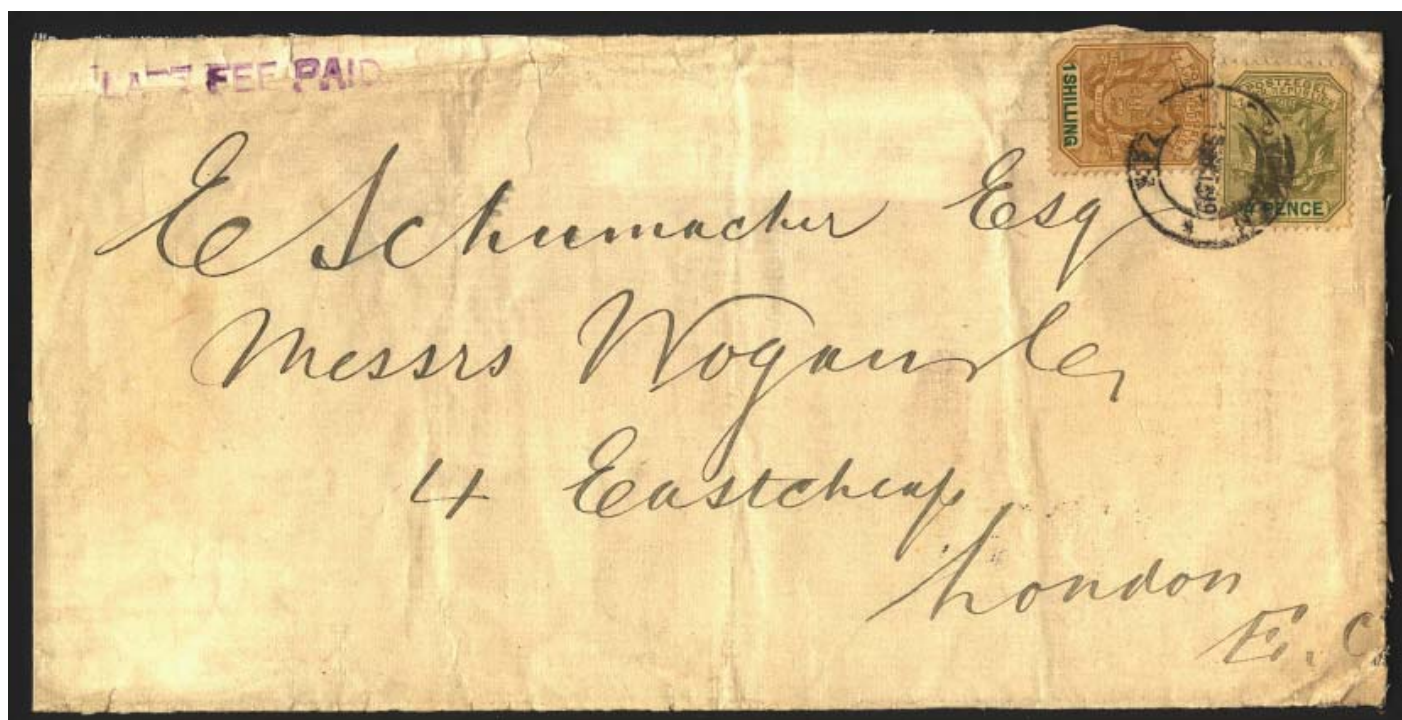 LATE FEE PAID
1 SHILLING
POSTZEGEL
PENCE
Z.A.R.
E Schumacher Esq
Messrs
4 Eastcheap
London
E. C.